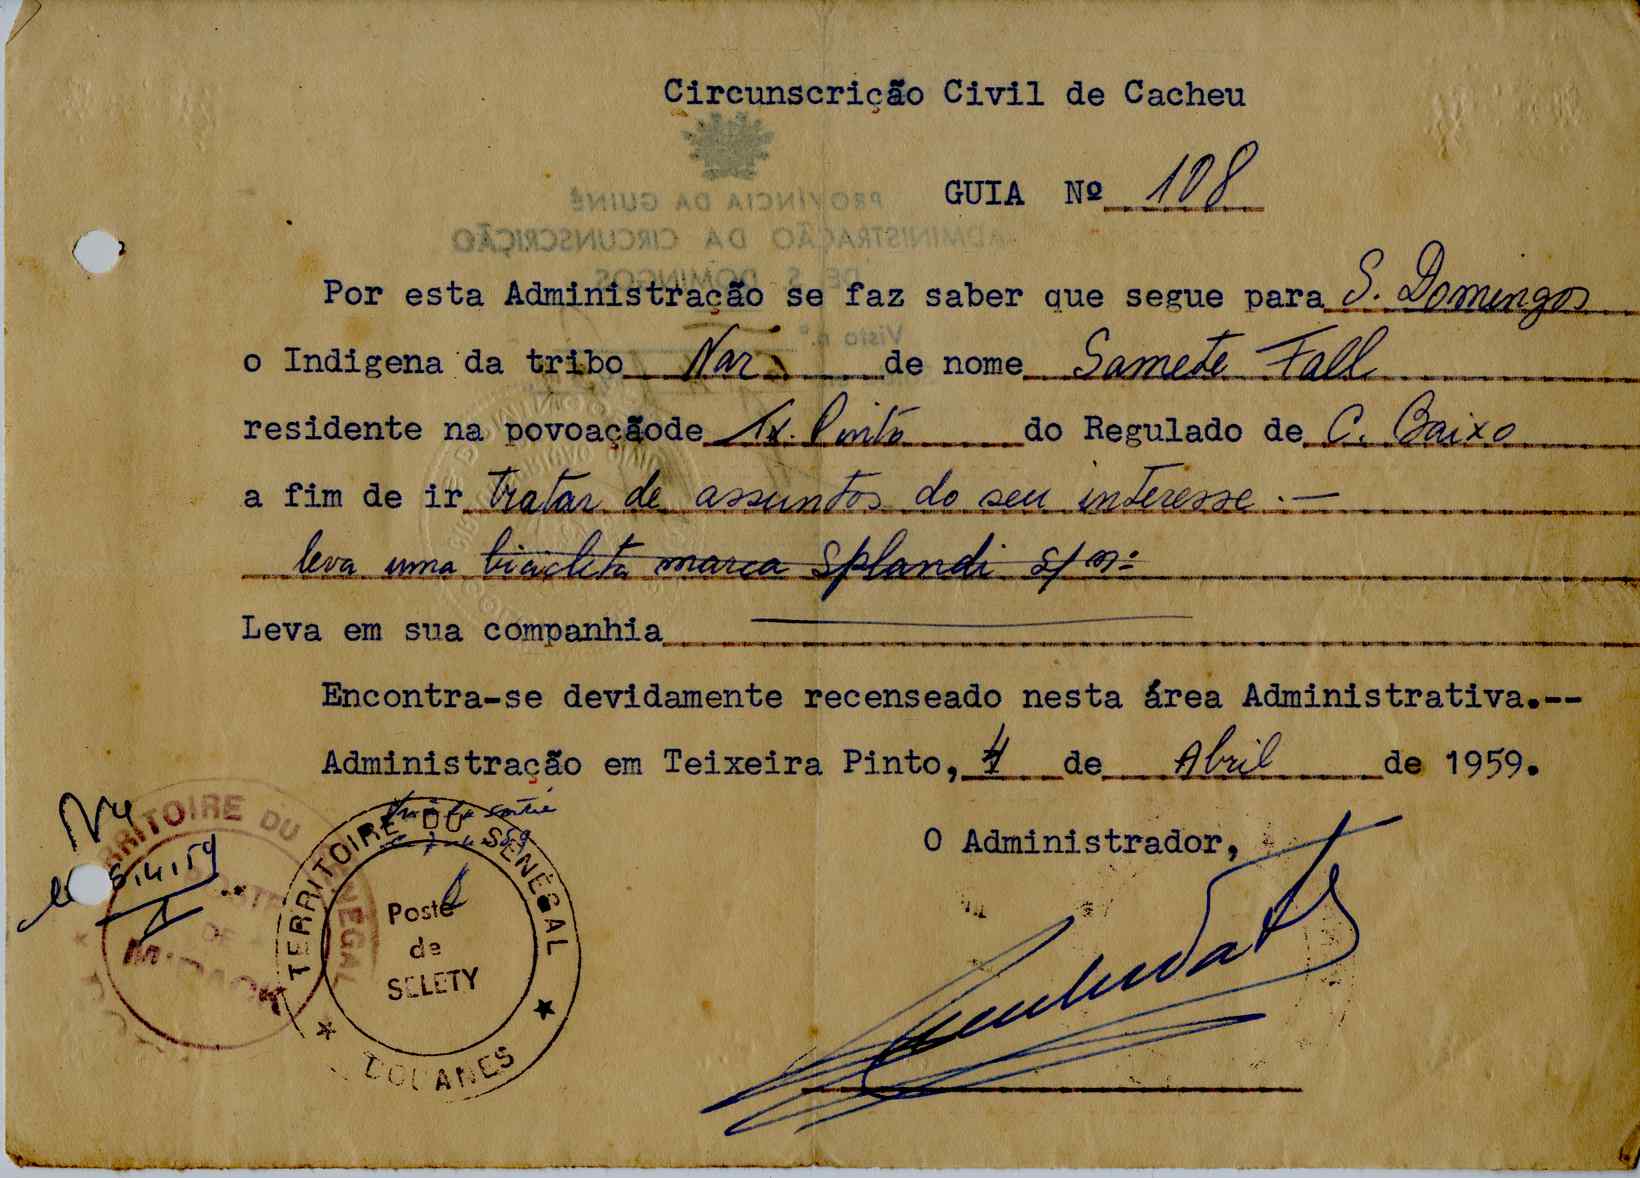 Circunscrição Civil de Cacheu
GUIA Nº 108
PROVÍNCIA DA GUINÉ
ADMINISTRAÇÃO DA CIRCUNSCRIÇÃO
DE S. DOMINGOS
Por esta Administração se faz saber que segue para S. Domingos
Visto n.º
o Indigena da tribo Nar de nome Samete Fall
residente na povoaçãode Tx. Pinto do Regulado de C. Baixo
a fim de ir tratar de assuntos do seu interesse.—
leva uma bicicleta marca Splandi s/ nº
Leva em sua companhia
Encontra-se devidamente recenseado nesta área Administrativa.--
Administração em Teixeira Pinto, 4 de Abril de 1959.
O Administrador,
Vu
5.4.59
TERRITOIRE DU SÉNÉGAL
POSTE
DE
TERRITOIRE DU SÉNÉGAL
Poste
de
SELETY
DOUANES